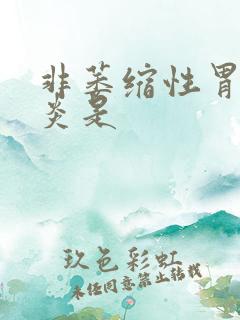 非萎缩性胃
炎是
玖色彩虹
未经同意禁止转载